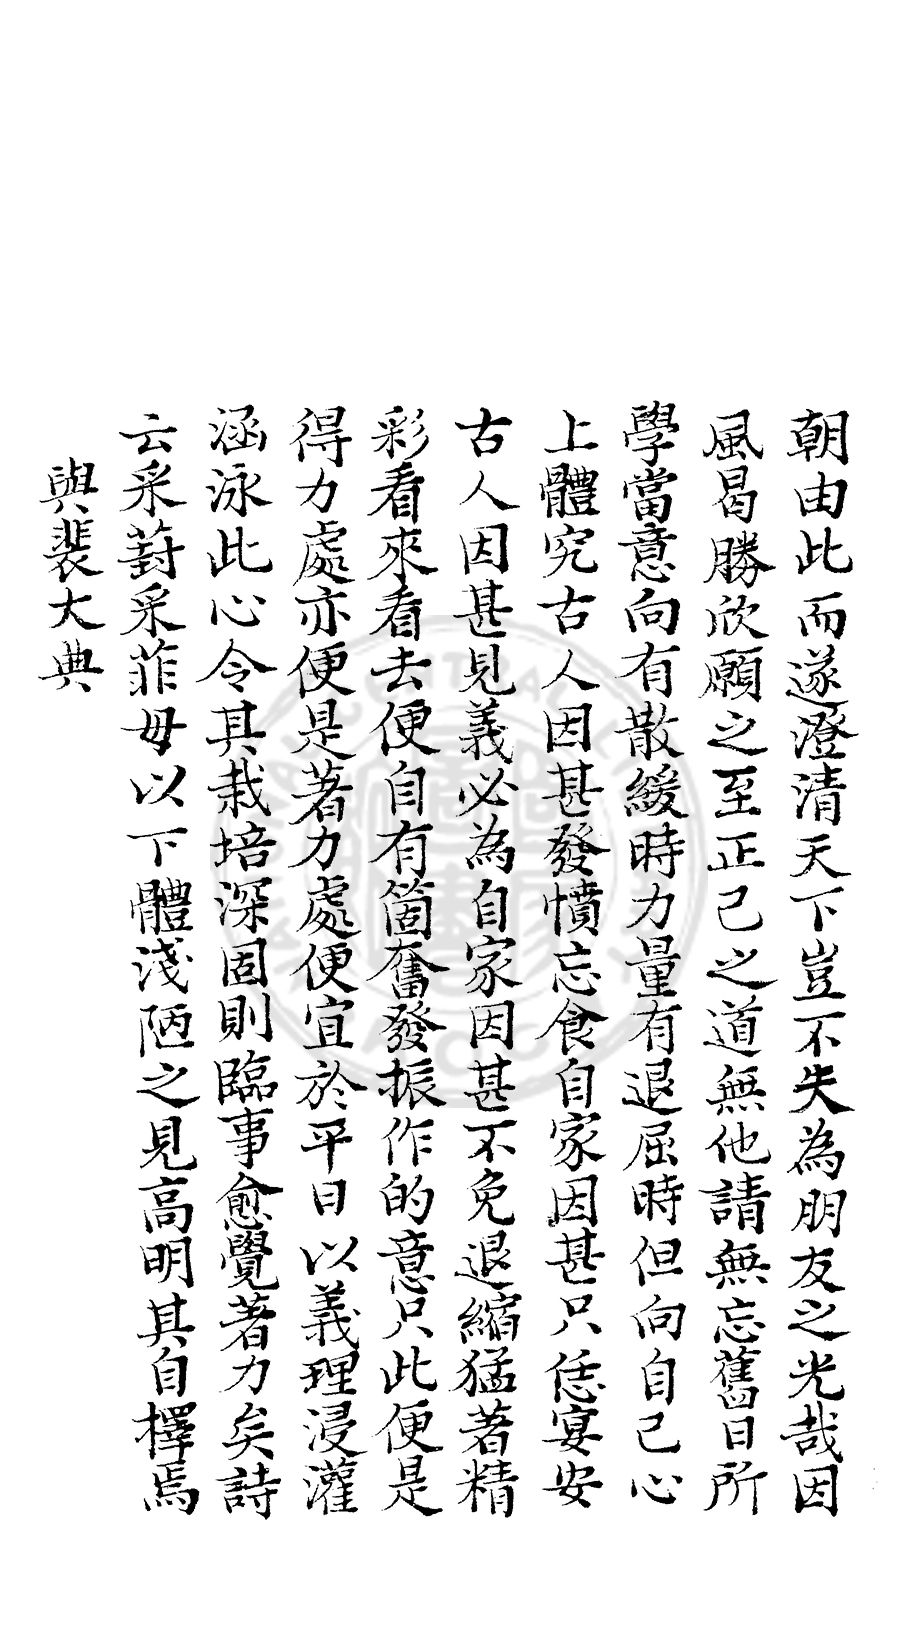 朝由此而遂澄清天下豈不失為朋友之光哉因
風曷勝欣願之至正己之道無他請無忘舊日所
學當意向有散緩時力量有退屈時但向自己心
上體究古人因甚發憤忘食自家因甚只恁宴安
古人因甚見義必為自家因甚不免退縮猛著精
彩看來看去便自有箇奮發振作的意只此便是
得力處亦便是著力處便宜於平日以義理浸灌
涵泳此心令其栽培深固則臨事愈覺著力矣詩
云采葑采菲毋以下體淺陋之見高明其自擇焉
與裴大典